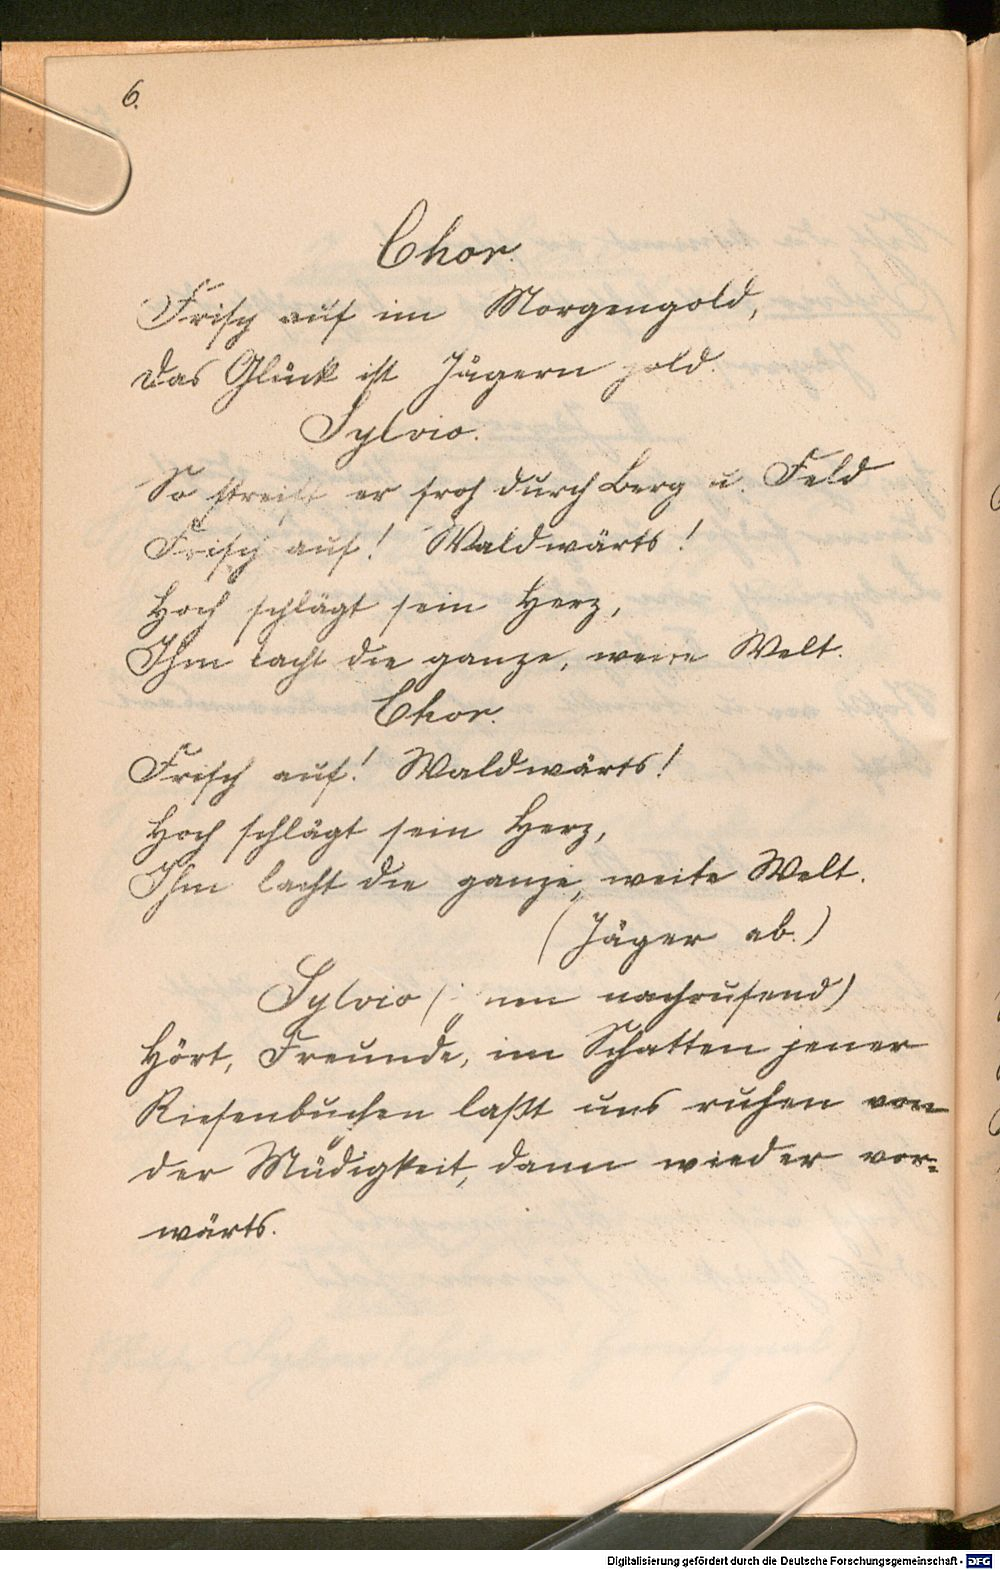 6.
Chor.
Frisch auf im Morgengold,
Das Glück ist Jägern hold.
Sylvio.
So streift er froh durch Berg u. Feld
Frisch auf! Waldwärts!
Hoch schlägt sein Herz,
Ihm lacht die ganze, weite Welt.
Chor.
Frisch auf! Waldwärts!
Hoch schlägt sein Herz,
Ihm lacht die ganze, weite Welt.
(Jäger ab.)
Sylvio (ihnen nachrufend)
Hört, Freunde, im Schatten jener
Riesenbuchen laßt uns ruhen von
der Müdigkeit, dann wieder vor-
wärts.
Digitalisierung gefördert durch die Deutsche Forschungsgemeinschaft - DFG